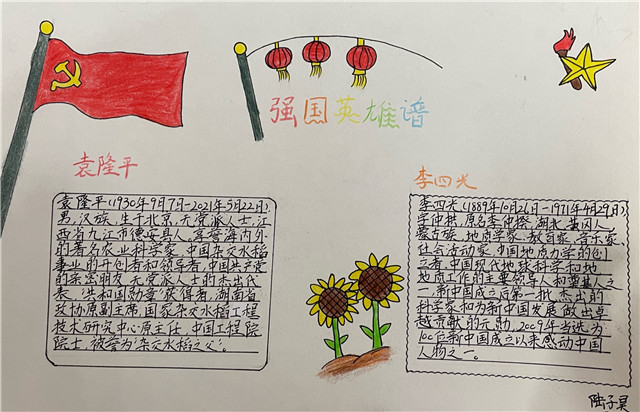 强国英雄谱
袁隆平
袁隆平(1930年9月7日-2021年5月22日)
男,汉族,生于北京,无党派人士,江
西省九江市德安县人,享誉海内外
的著名农业科学家,中国杂交水稻
事业的开创者和领导者,中国共产党
的亲密朋友,无党派人士的杰出代
表,“共和国勋章”获得者,湖南省
政协原副主席,国家杂交水稻工程
技术研究中心原主任,中国工程院
院士,被誉为“杂交水稻之父”。
李四光
李四光(1889年10月26日-1971年4月29日)
字仲拱,原名李仲揆,湖北黄冈人,
蒙古族,地质学家、教育家、音乐家、
社会活动家,中国地质力学的创
立者,中国现代地球科学和地
质工作的主要领导人和奠基人之
一,新中国成立后第一批杰出的
科学家和为新中国发展做出卓
越贡献的元勋,2009年当选为
100位新中国成立以来感动中国
人物之一。
陆子昊